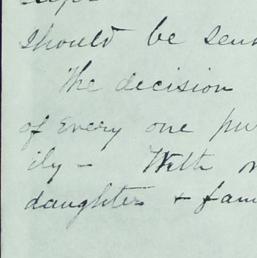 should be sen
The decision
of Every one pu
ily - With
daughter + fam